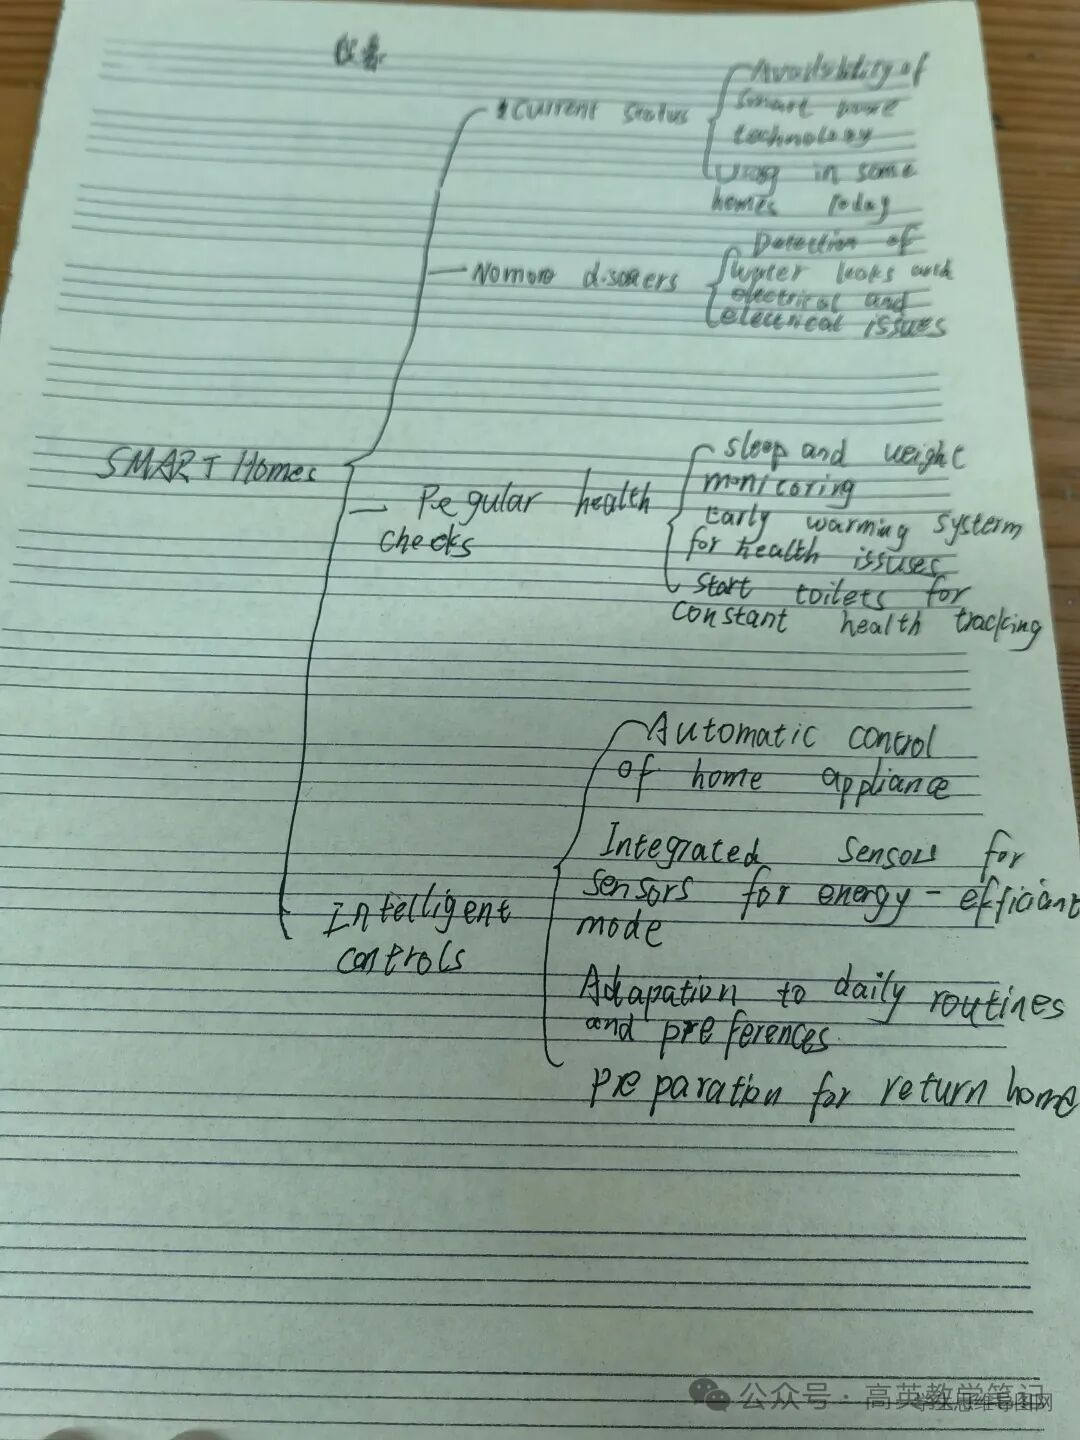 Current status
Availability of
smart home
technology
Usag in some
homes today
No more disasers
Detection of
water leaks and
electrical and
electrical issues
SMART Homes
Regular health
checks
sleep and weight
monicoring
Early warming systerm
for health issuses
start toilets for
constant health tracking
Intelligent
controls
Automatic control
of home appliance
Integrated sensors for
sensors for energy-efficiant
mode
Adapation to daily routines
and preferences.
preparation for return home
公众号·高英教学笔记